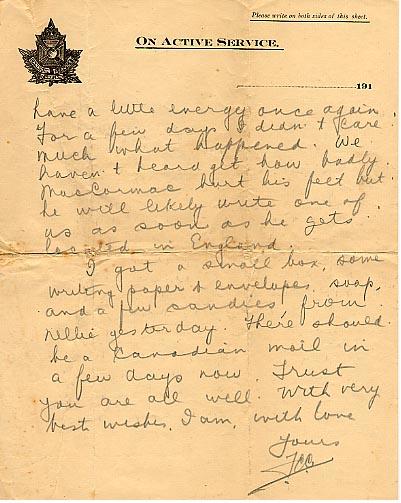 Please write on both sides of this sheet.
ON ACTIVE SERVICE.
191
have a little energy once again.
For a few days I didn't care
much what happened. We
haven't heard yet how badly
MacCormac hurt his feet but
he will likely write one of
us as soon as he gets
located in England.
I got a small box, some
writing paper & envelopes, soap,
and a few candies from
Nellie yesterday. There should
be a Canadian mail in
a few days now. Trust
you are all well. With very
best wishes, I am, with love
Yours